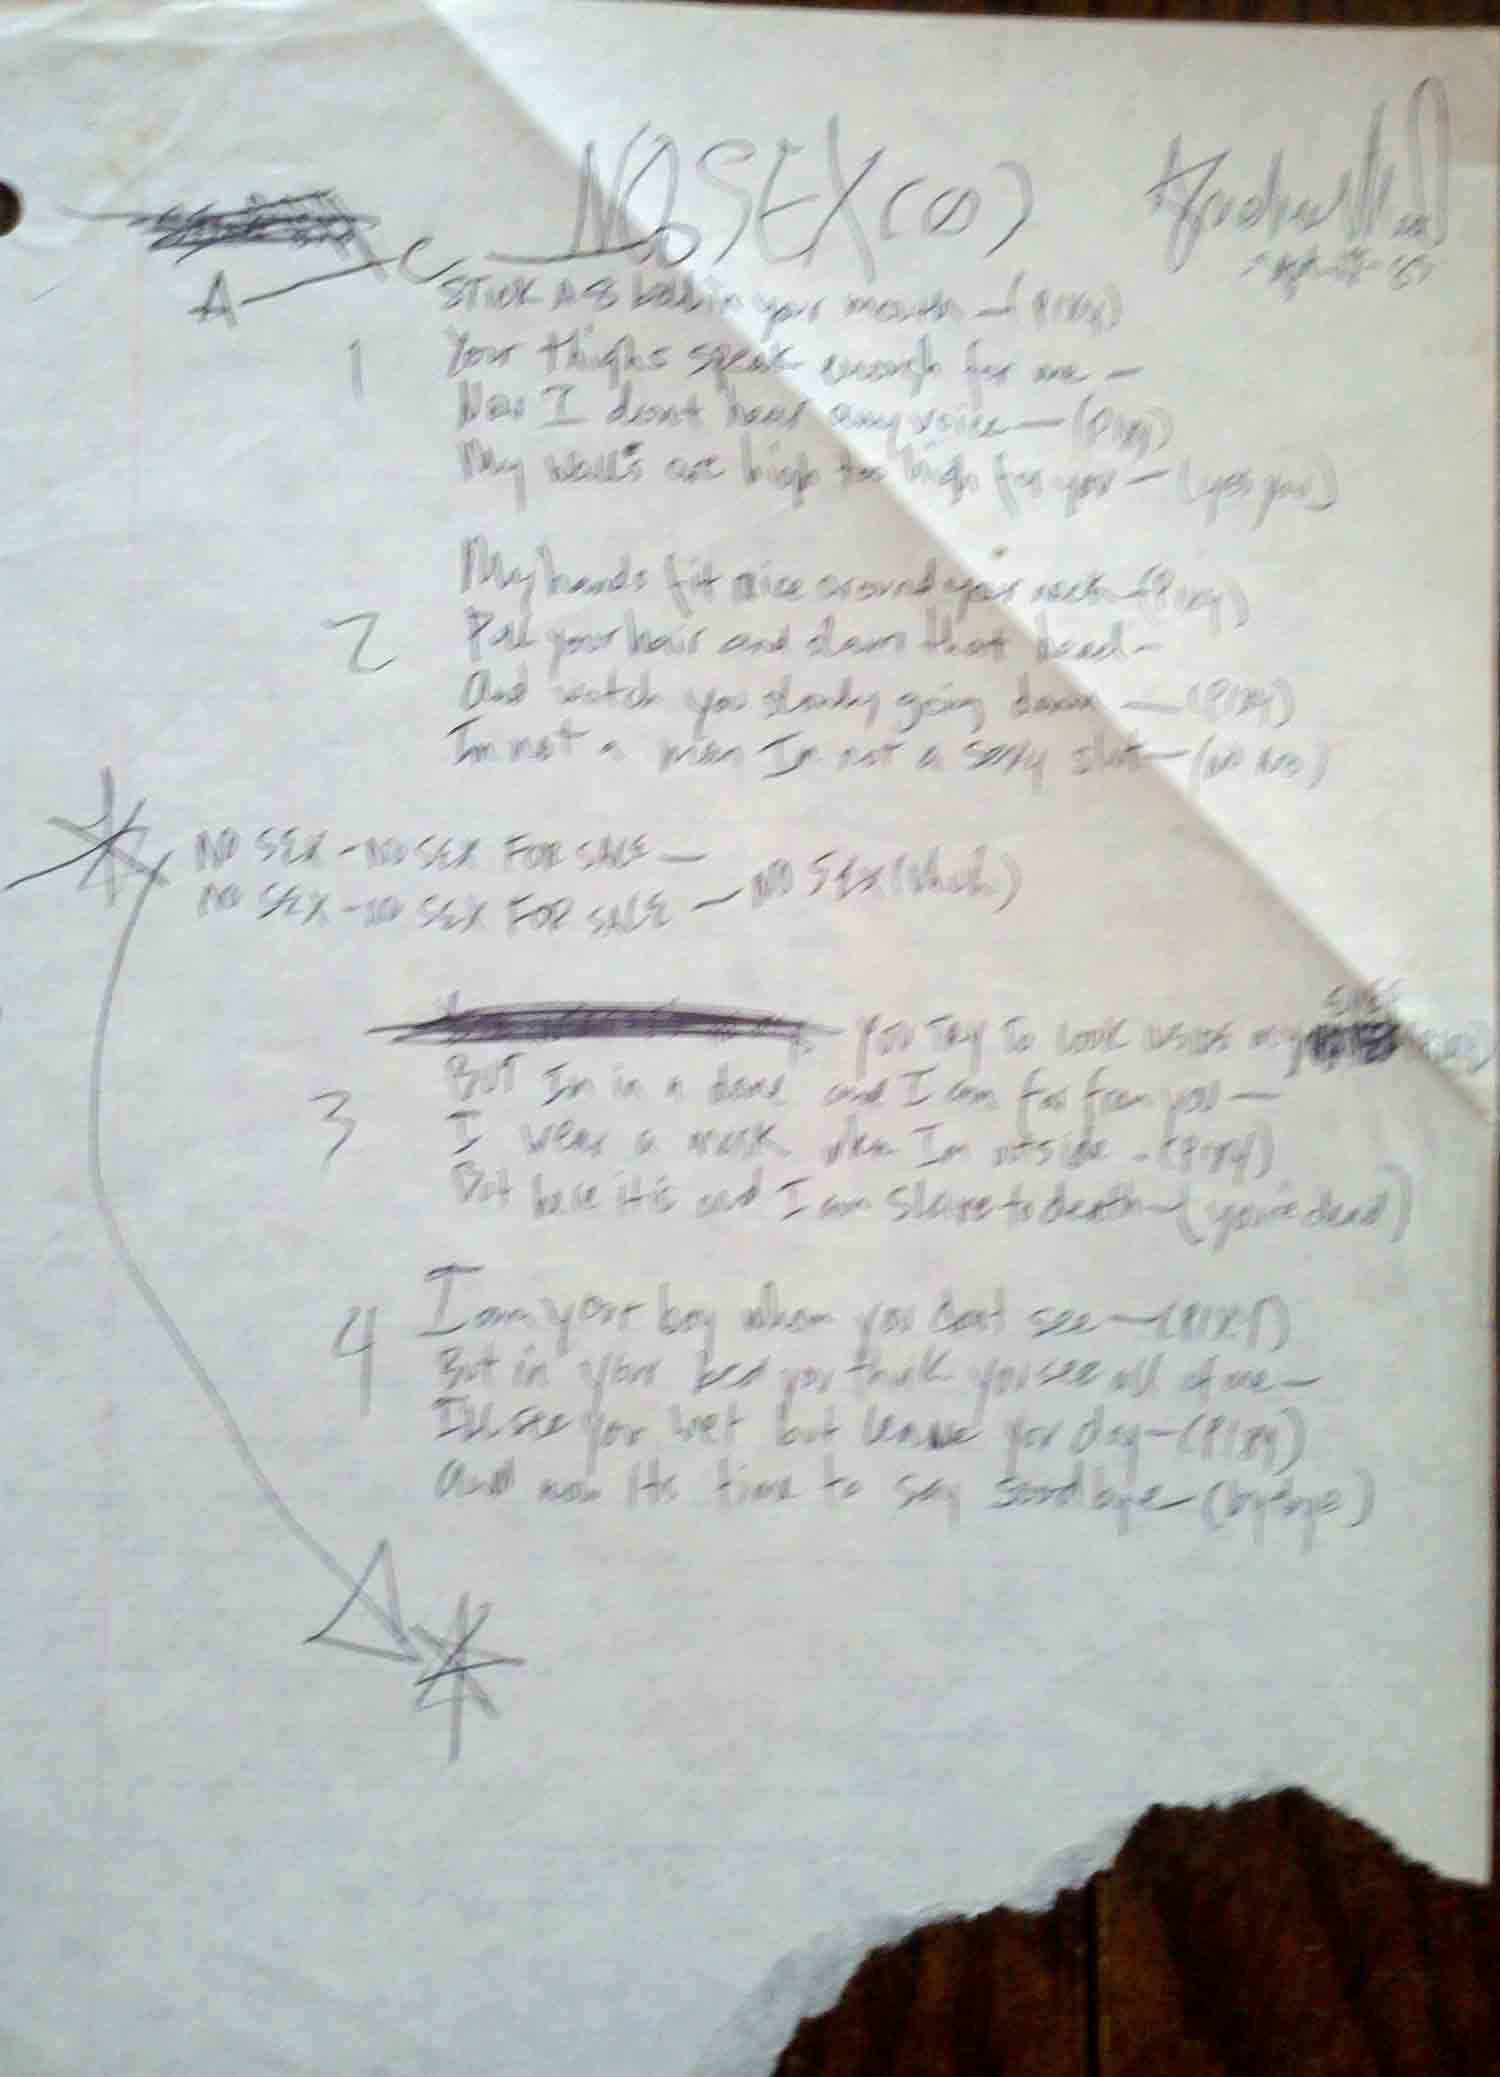 NO SEX (∞)
A C
STICK A 8 ball in your mouth - (Pixy)
1 Your thighs speak enough for me -
Now I dont hear any voice - (Pixy)
My walls are high too high for you - (yes you)
My hands fit nice around your neck - (Pixy)
2 Pull your hair and slam that head -
And watch you slowly going down - (Pixy)
Im not a man Im not a sexy slut - (no no)
NO SEX - NO SEX FOR SALE -
NO SEX - NO SEX FOR SALE - NO SEX
YOU TRY TO LOOK INSIDE my
BUT Im in a and I am far from you -
3 I wear a mask when Im outside - (Pixy)
But here it is and I am Slave to death - (you're dead)
4 I am your boy whom you dont see - (PIXY)
But in your bed you think you see all of me -
Ill see you wet but leave you dry - (Pixy)
And now its time to say good bye - (bye bye)